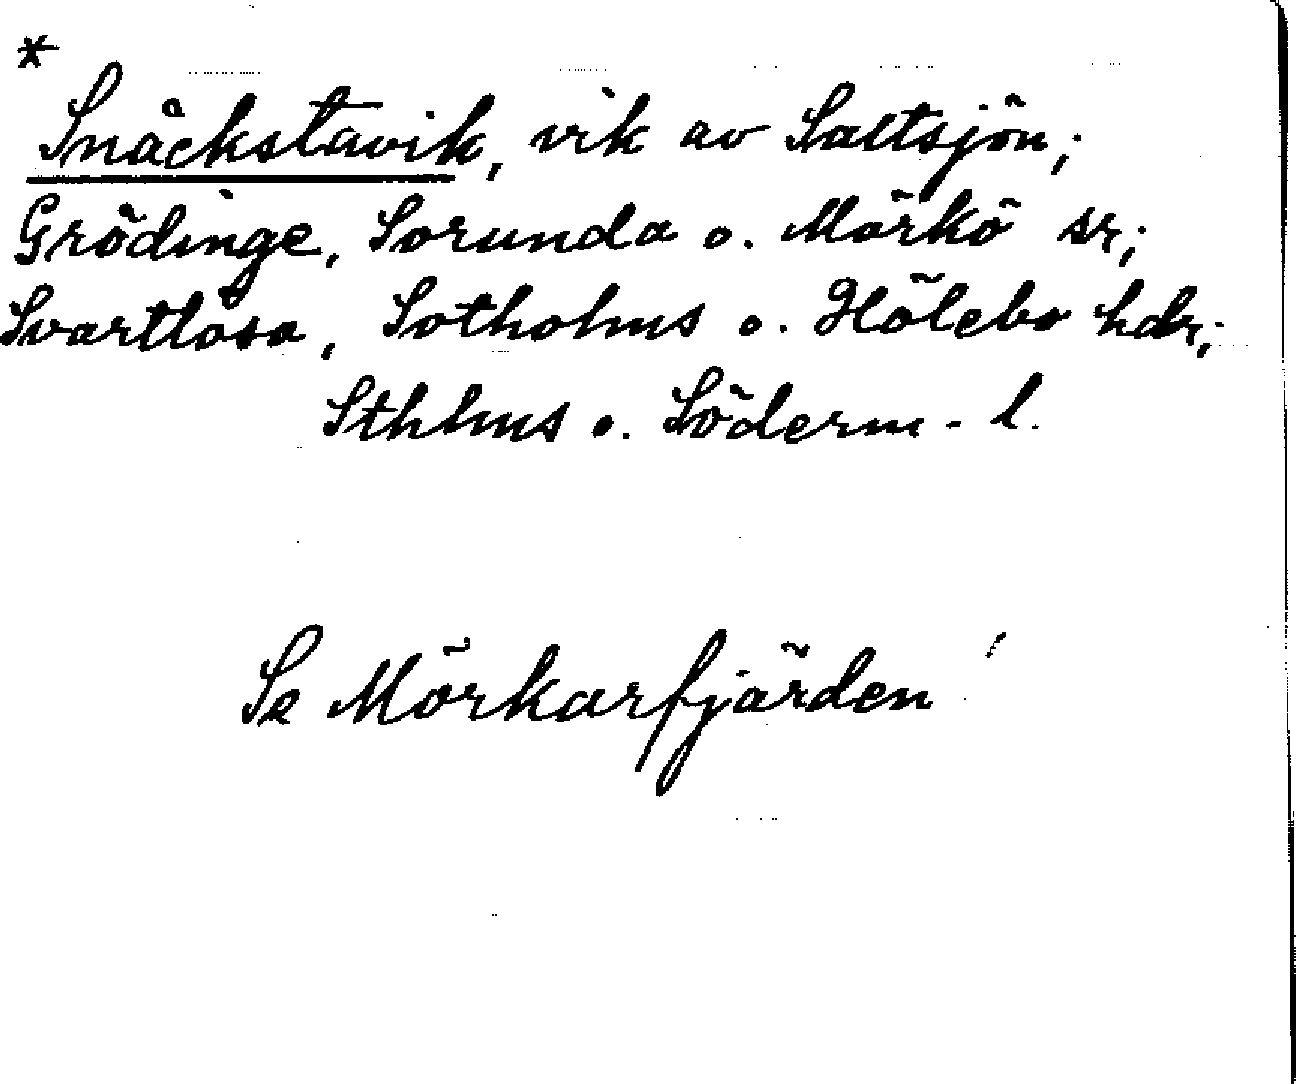 *
Snäckstavik, vik av Saltsjön;
Grödinge, Sorunda o. Mörkö sr;
Svartlösa, Sotholms o. Hölebo hdr;
Sthlms o. Söderm - l.
Se Mörkarfjärden